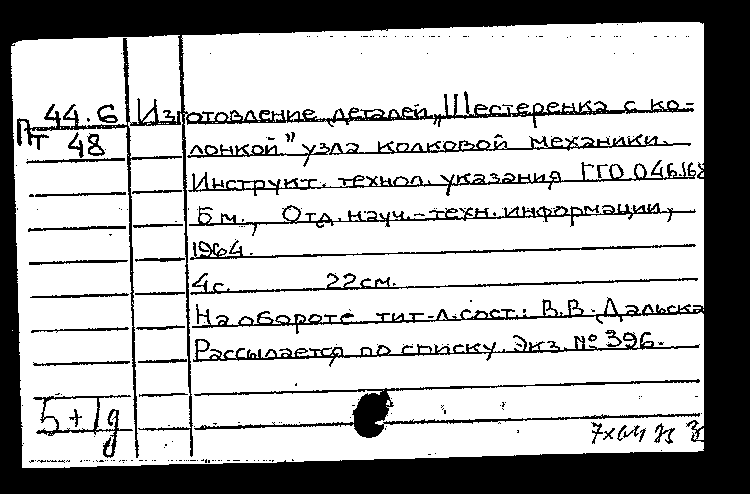 44.6 Изготовление деталей „Шестеренка с ко-
Пт 48 лонкой" узла колковой механики.
Инструкт. технол. указания ГГО.046.168
Б м., Отд. науч.-техн. информации,
1964.
4с. 22см.
На обороте тит-л. сост.: В.В. Дальска
Рассылается по списку. Экз. № 396.
5+1д